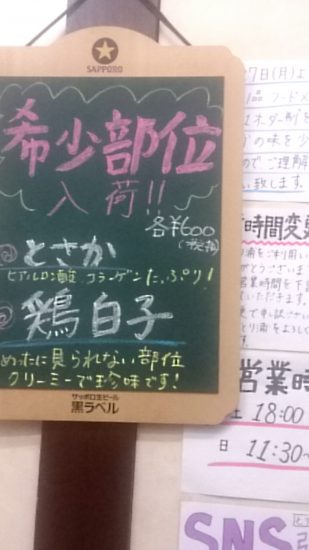 SAPPORO
希少部位
入荷!!
各¥600
(税抜)
とさか
ヒアルロン酸、コラーゲンたっぷり!
鶏白子
めったに見られない部位
クリーミーで珍味です!
サッポロ生ビール
黒ラベル
7日(月)よ
フードメ
オーダー制を
の味を少
ので ご理解
い致します。
時間変更
ご利用い
がとうございま
営業時間を下
ていただきます。
で申し訳ござい
とり浦をよろしく
す。
営業時
土 18:00
日 11:30~
SNS